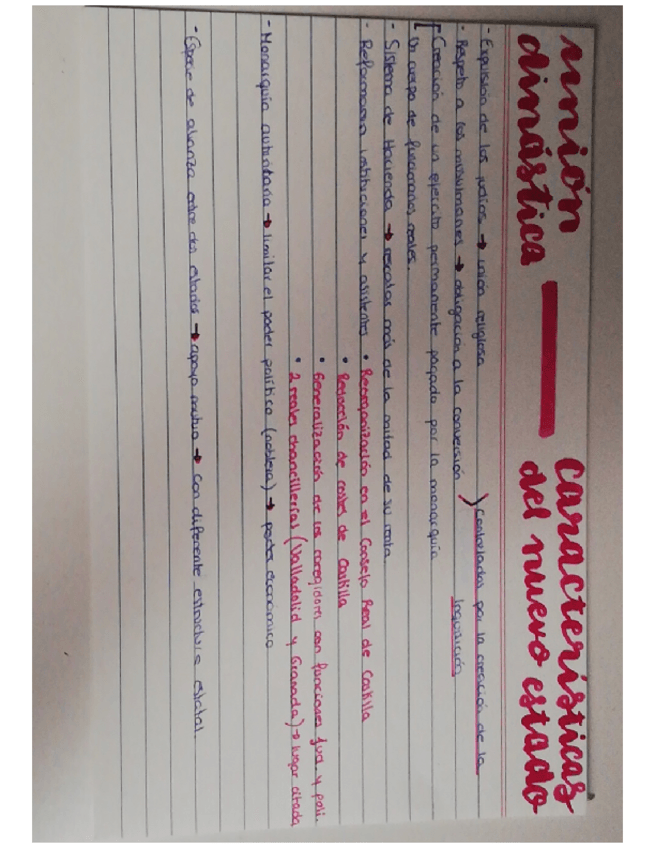 unión dinástica — características del nuevo estado
- Expulsión de los judíos → unión religiosa
- Respeto a los musulmanes → obligación a la conversión
) controlados por la creación de la
Inquisición
- Creación de un ejército permanente pagado por la monarquía
Un cuerpo de funcionarios reales.
- Sistema de Hacienda → recaudar más de la mitad de su renta
- Reformaron instituciones y asistentes
• Reorganización en el Consejo Real de Castilla
• Redacción de cortes de Castilla
• Generalización de los corregidores con funciones jud. y poli.
• 2 reales chancillerías (Valladolid y Granada) → lugar
- Monarquía autoritaria → limitar el poder político (nobleza) → poder económico
- Especie de alianza entre dos estados → apoyo mutuo → con diferente estructura estatal.